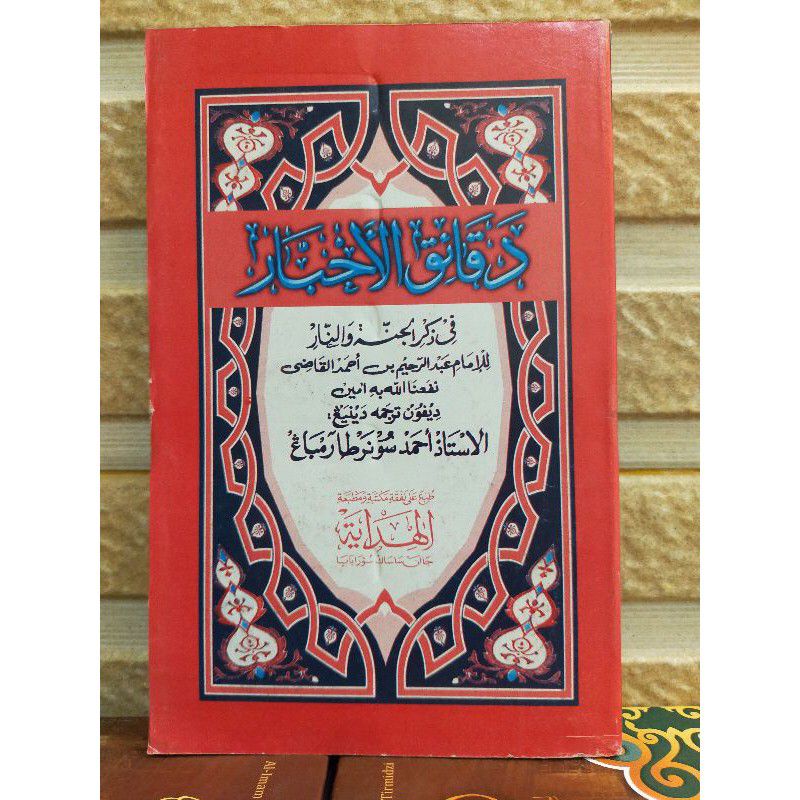 دقائق الأخبار
في ذكر الجنة والنار
للإمام عبد الرحيم بن أحمد القاضى
نفعنا الله به امين
ديفون ترجمه دينيڠ:
الاستاذ أحمد سونرطا رمباڠ
طبع على نفقة مكتبة ومطبعة
الهداية
جالن ساساك سورابايا
Al-Imam
Tirmidzi